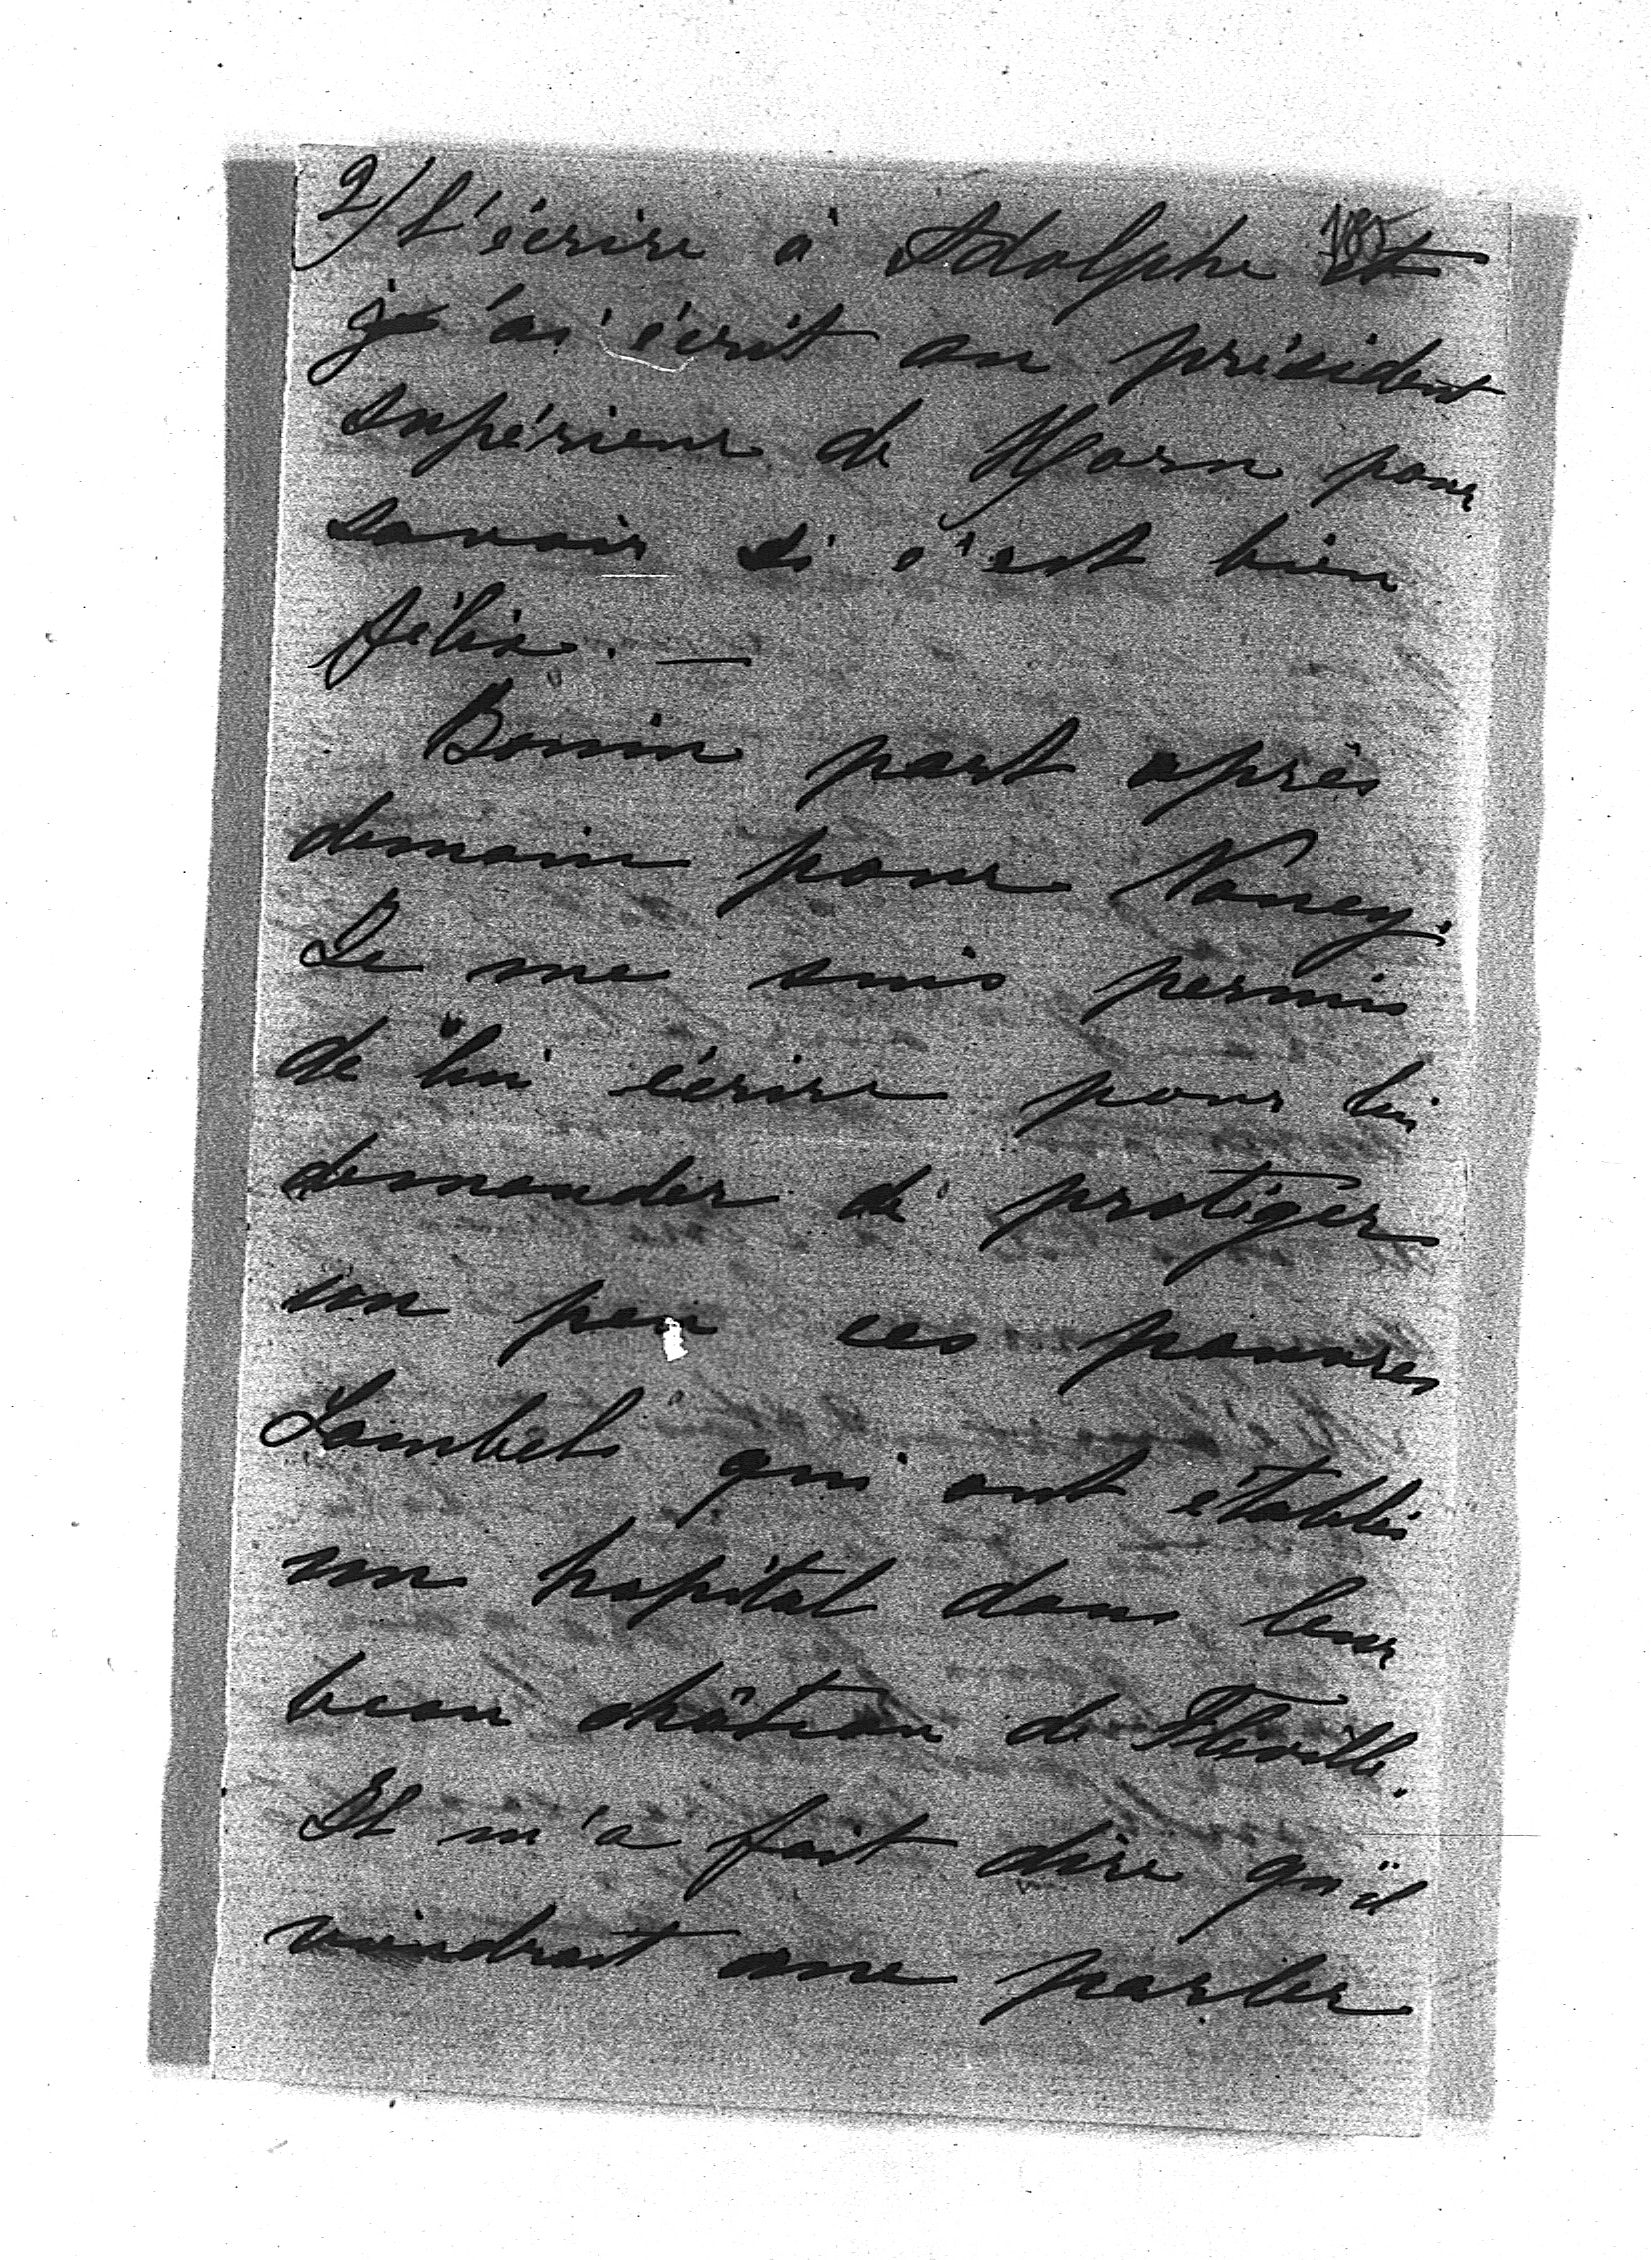 2/ l'écrire à Adolphe et
j'ai écrit au président
supérieur de Horn pour
savoir si c'est bien
félix. —
Bonin part après
demain pour Nancy.
Je me suis permis
de lui écrire pour lui
demander de protéger
un peu ces pauvres
Lambel qui ont établi
un hopital dans leur
beau château de Fléville.
Il m'a fait dire qu'il
viendrait me parler